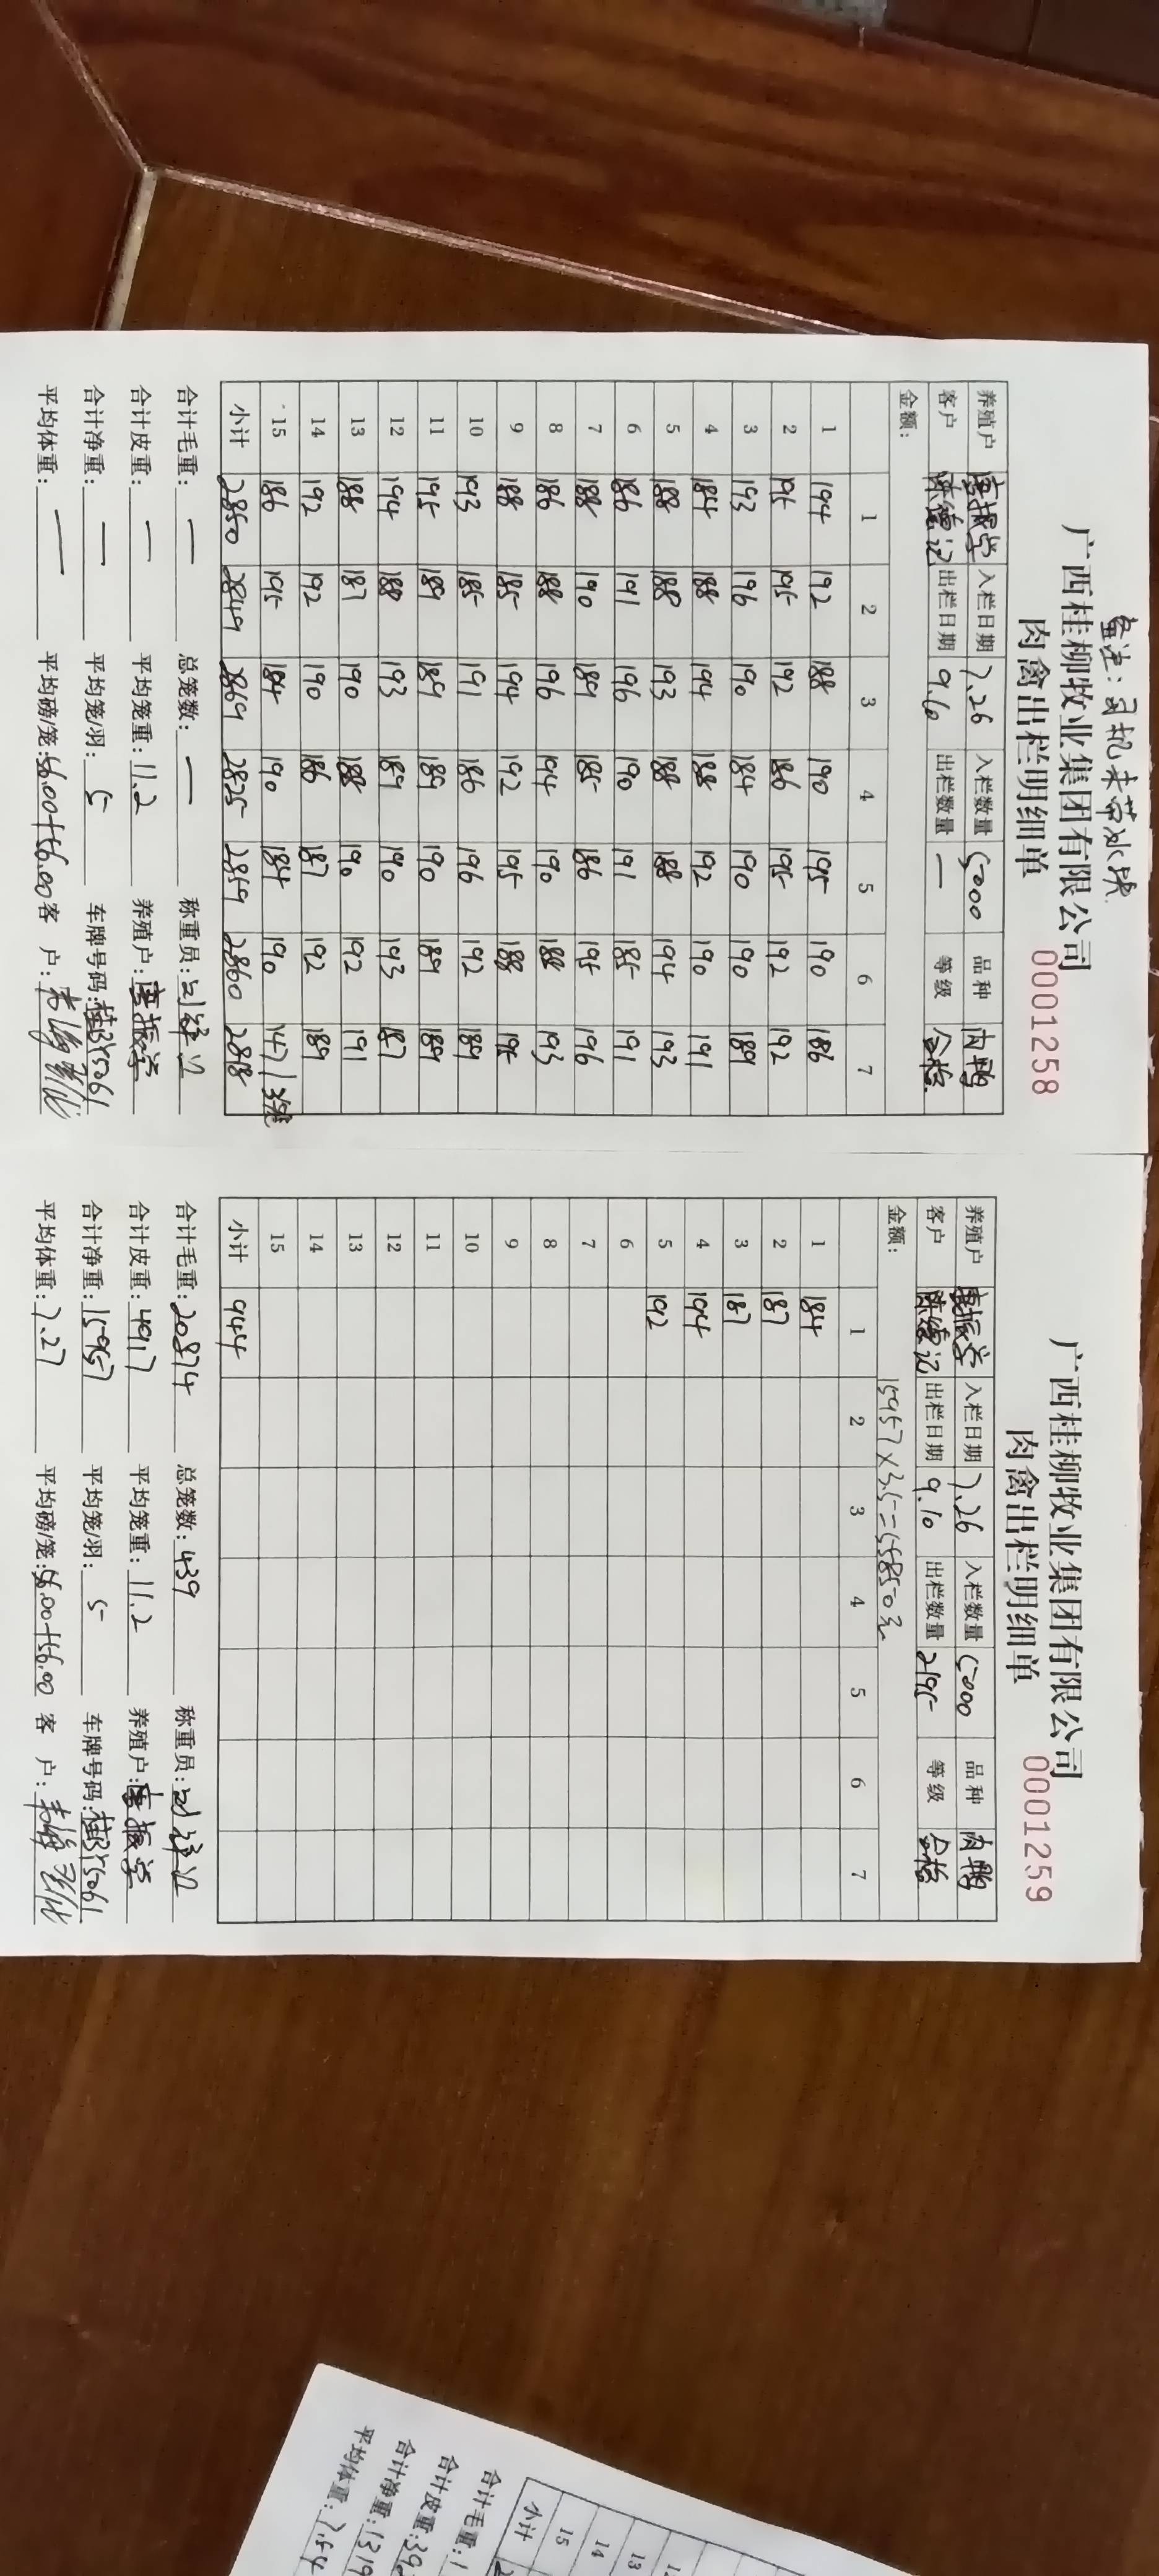 备注：司机未带冰块
广西桂柳牧业集团有限公司
肉禽出栏明细单 0001258
养殖户 入栏日期 7.26 入栏数量 5000 品种 肉鸭
客户 出栏日期 9.10 出栏数量 — 等级 合格
金额：
1 2 3 4 5 6 7
1 194 192 188 190 195 190 186
2 195 195 192 186 195 192 192
3 193 196 190 184 190 190 189
4 184 188 194 188 192 190 191
5 188 188 193 188 188 194 193
6 186 191 196 190 191 185 191
7 188 190 189 185 186 195 196
8 186 188 196 194 190 188 193
9 188 185 194 192 195 188
10 193 185 191 186 196 192 189
11 195 189 189 189 190 189 189
12 194 188 193 189 190 193 187
13 188 187 190 188 190 192 191
14 192 192 190 186 187 192 189
15 186 195 184 190 184 190 147/3
小计 2850 2849 2869 2825 2859 2860 2818
合计毛重：— 总笼数：— 称重员：
合计皮重：— 平均笼重：11.2 养殖户：
合计净重：— 平均笼/羽：5 车牌号码：
平均体重：— 平均磅/笼：56.00+56.00 客 户：
广西桂柳牧业集团有限公司
肉禽出栏明细单 0001259
养殖户 入栏日期 7.26 入栏数量 5000 品种 肉鸭
客户 出栏日期 9.10 出栏数量 2195 等级 合格
金额： 15957×3.5=55850元
1 2 3 4 5 6 7
1 184
2 187
3 187
4 194
5 192
6
7
8
9
10
11
12
13
14
15
小计 944
合计毛重：20874 总笼数：439 称重员：
合计皮重：4917 平均笼重：11.2 养殖户：
合计净重：15957 平均笼/羽：5 车牌号码：
平均体重：7.27 平均磅/笼：56.00+56.00 客 户：
13
14
15
小计
合计毛重：1
合计皮重：39
合计净重：1319
平均体重：7.54